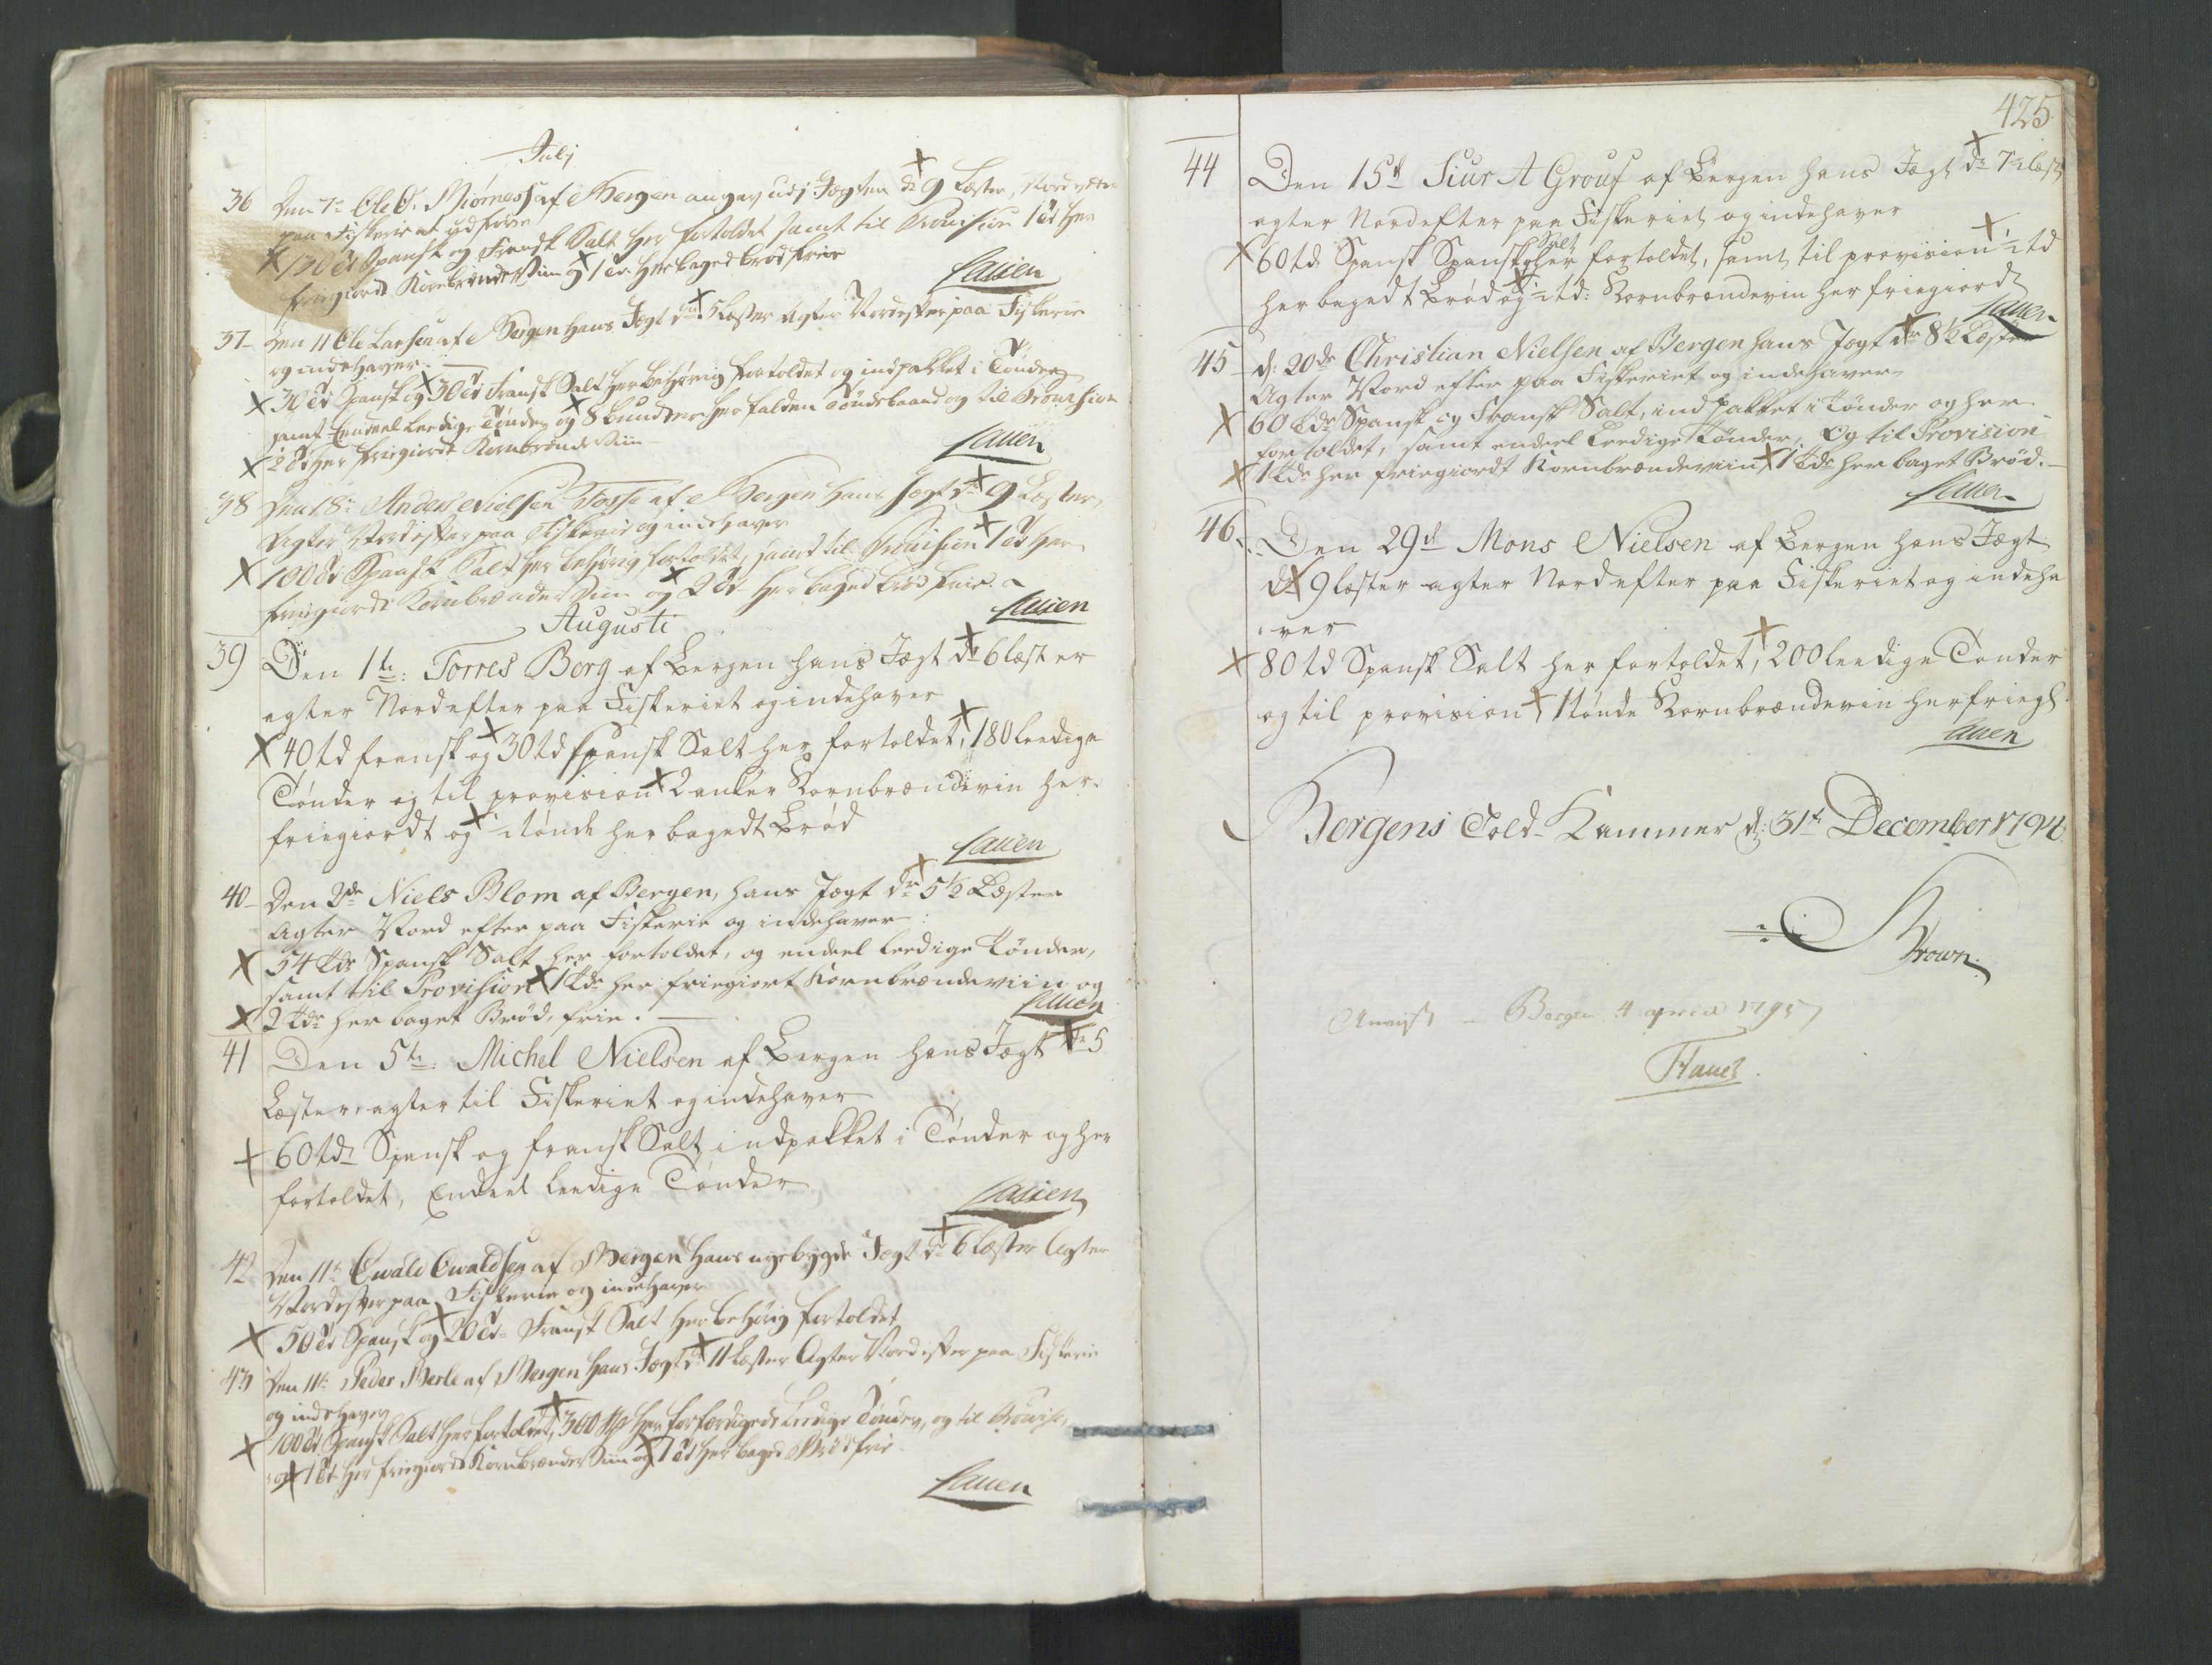 Julj
36 Den 7de Ole O. Miørness af Bergen angav udj Jægten dr 9 Læster, Nord efter
paa Fiskerie at udføre
130 td Spansk og Fransk Salt her fortoldet samt til Provision 1 td her
friegiordt Kornbrænde Viin og 1 td. her baged brød frie
Lauen
37 Den 11 Ole Larsen af Bergen hans Jægt dr 5 Læster Agter Nordefter paa Fiskerie
og indehaver
30 td Spansk og 30 td Fransk Salt her behørig fortoldet og indpakket i Tønder
samt Endeel Leedige Tønder og 8 bundter her falden Tøndebaand og til Provision
2 td her friegiordt Kornbrænde Viin
Lauen
38 Den 18: Anders Nielsen Tosse af Bergen hans Jægt dr 9 Læster,
Agter Nordefter paa Fiskerie og indehaver
100 td Spansk Salt her behørig fortoldet, samt til Provision 1 td her
friegiordt Kornbrænde Viin og 2 td her baged brød frie
Lauen
Augusti
39 Den 1te: Torres Borg af Bergen hans Jægt dr 6 læster
agter Nordefter paa Fiskeriet og indehaver
40 td fransk og 30 td spansk Salt her fortoldet, 180 leedige
Tønder og til provision 2 anker Kornbrændevin her
friegiordt og ½ tønde her bagedt Brød
Lauen
40 Den 2de Niels Blom af Bergen, hans Jægt dr 5½ Læster
Agter Nord efter paa Fiskerie og indehaver:
54 tdr Spansk Salt her fortoldet, og endeel leedige Tønder,
samt til Provision 1 tde her friegiort Kornbrændeviin og
2 tdr her baget Brød, frie.
Lauen
41 Den 5te: Michel Nielsen af Bergen hans Jægt dr 5
Læster agter til Fiskeriet og indehaver
60 tdr Spansk og fransk Salt indpakket i Tønder og her
fortoldet, Endeel leedige Tønder
Lauen
42 Den 11te Ewald Ewaldsen af Bergen hans nyebygde Jægt dr 6 Læster Agter
Nordefter paa Fiskerie og indehaver
50 td Spansk og 20 td Fransk Salt her behørig fortoldet
43 Den 11te Peder Merle af Bergen hans Jægt dr 11 Læster Agter Nordefter paa Fiskerie
og indehaver
100 td Spansk Salt her fortoldet, 300 her forfærdigede Leedige Tønder, og til Provision,
og 1 td her friegiordt Kornbrænde Viin og 1 td her baged Brød frie
Lauen
425
44 Den 15de Siur A Grouf af Bergen hans Jægt dr 7½ læst
agter Nordefter paa Fiskeriet og indehaver
60 td Spansk Spansk Salt her fortoldet, samt til provision ½ td
her bagedt Brød og ½ td: Kornbrændevin her friegiordt
Lauen
45 d: 20de Christian Nielsen af Bergen hans Jægt dr 8½ Læster
Agter Nord efter paa Fiskeriet og indehaver
60 tdr Spansk og Fransk Salt, indpakket i Tønder og her
fortoldet, samt endeel Leedige Tønder, Og til Provision
1 tde her friegiordt Kornbrændeviin, 1 tde her baget Brød.
Lauen
46. Den 29de Mons Nielsen af Bergen hans Jægt
dr 9 læster agter Nordefter paa Fiskeriet og indeha
ver
80 td Spansk Salt her fortoldet, 200 leedige Tønder
og til provision 1 tønde Kornbrændevin her friegt
Lauen
Bergens Told-Kammer d: 31te December 1794
Brown.
Bergen 4 april 1795